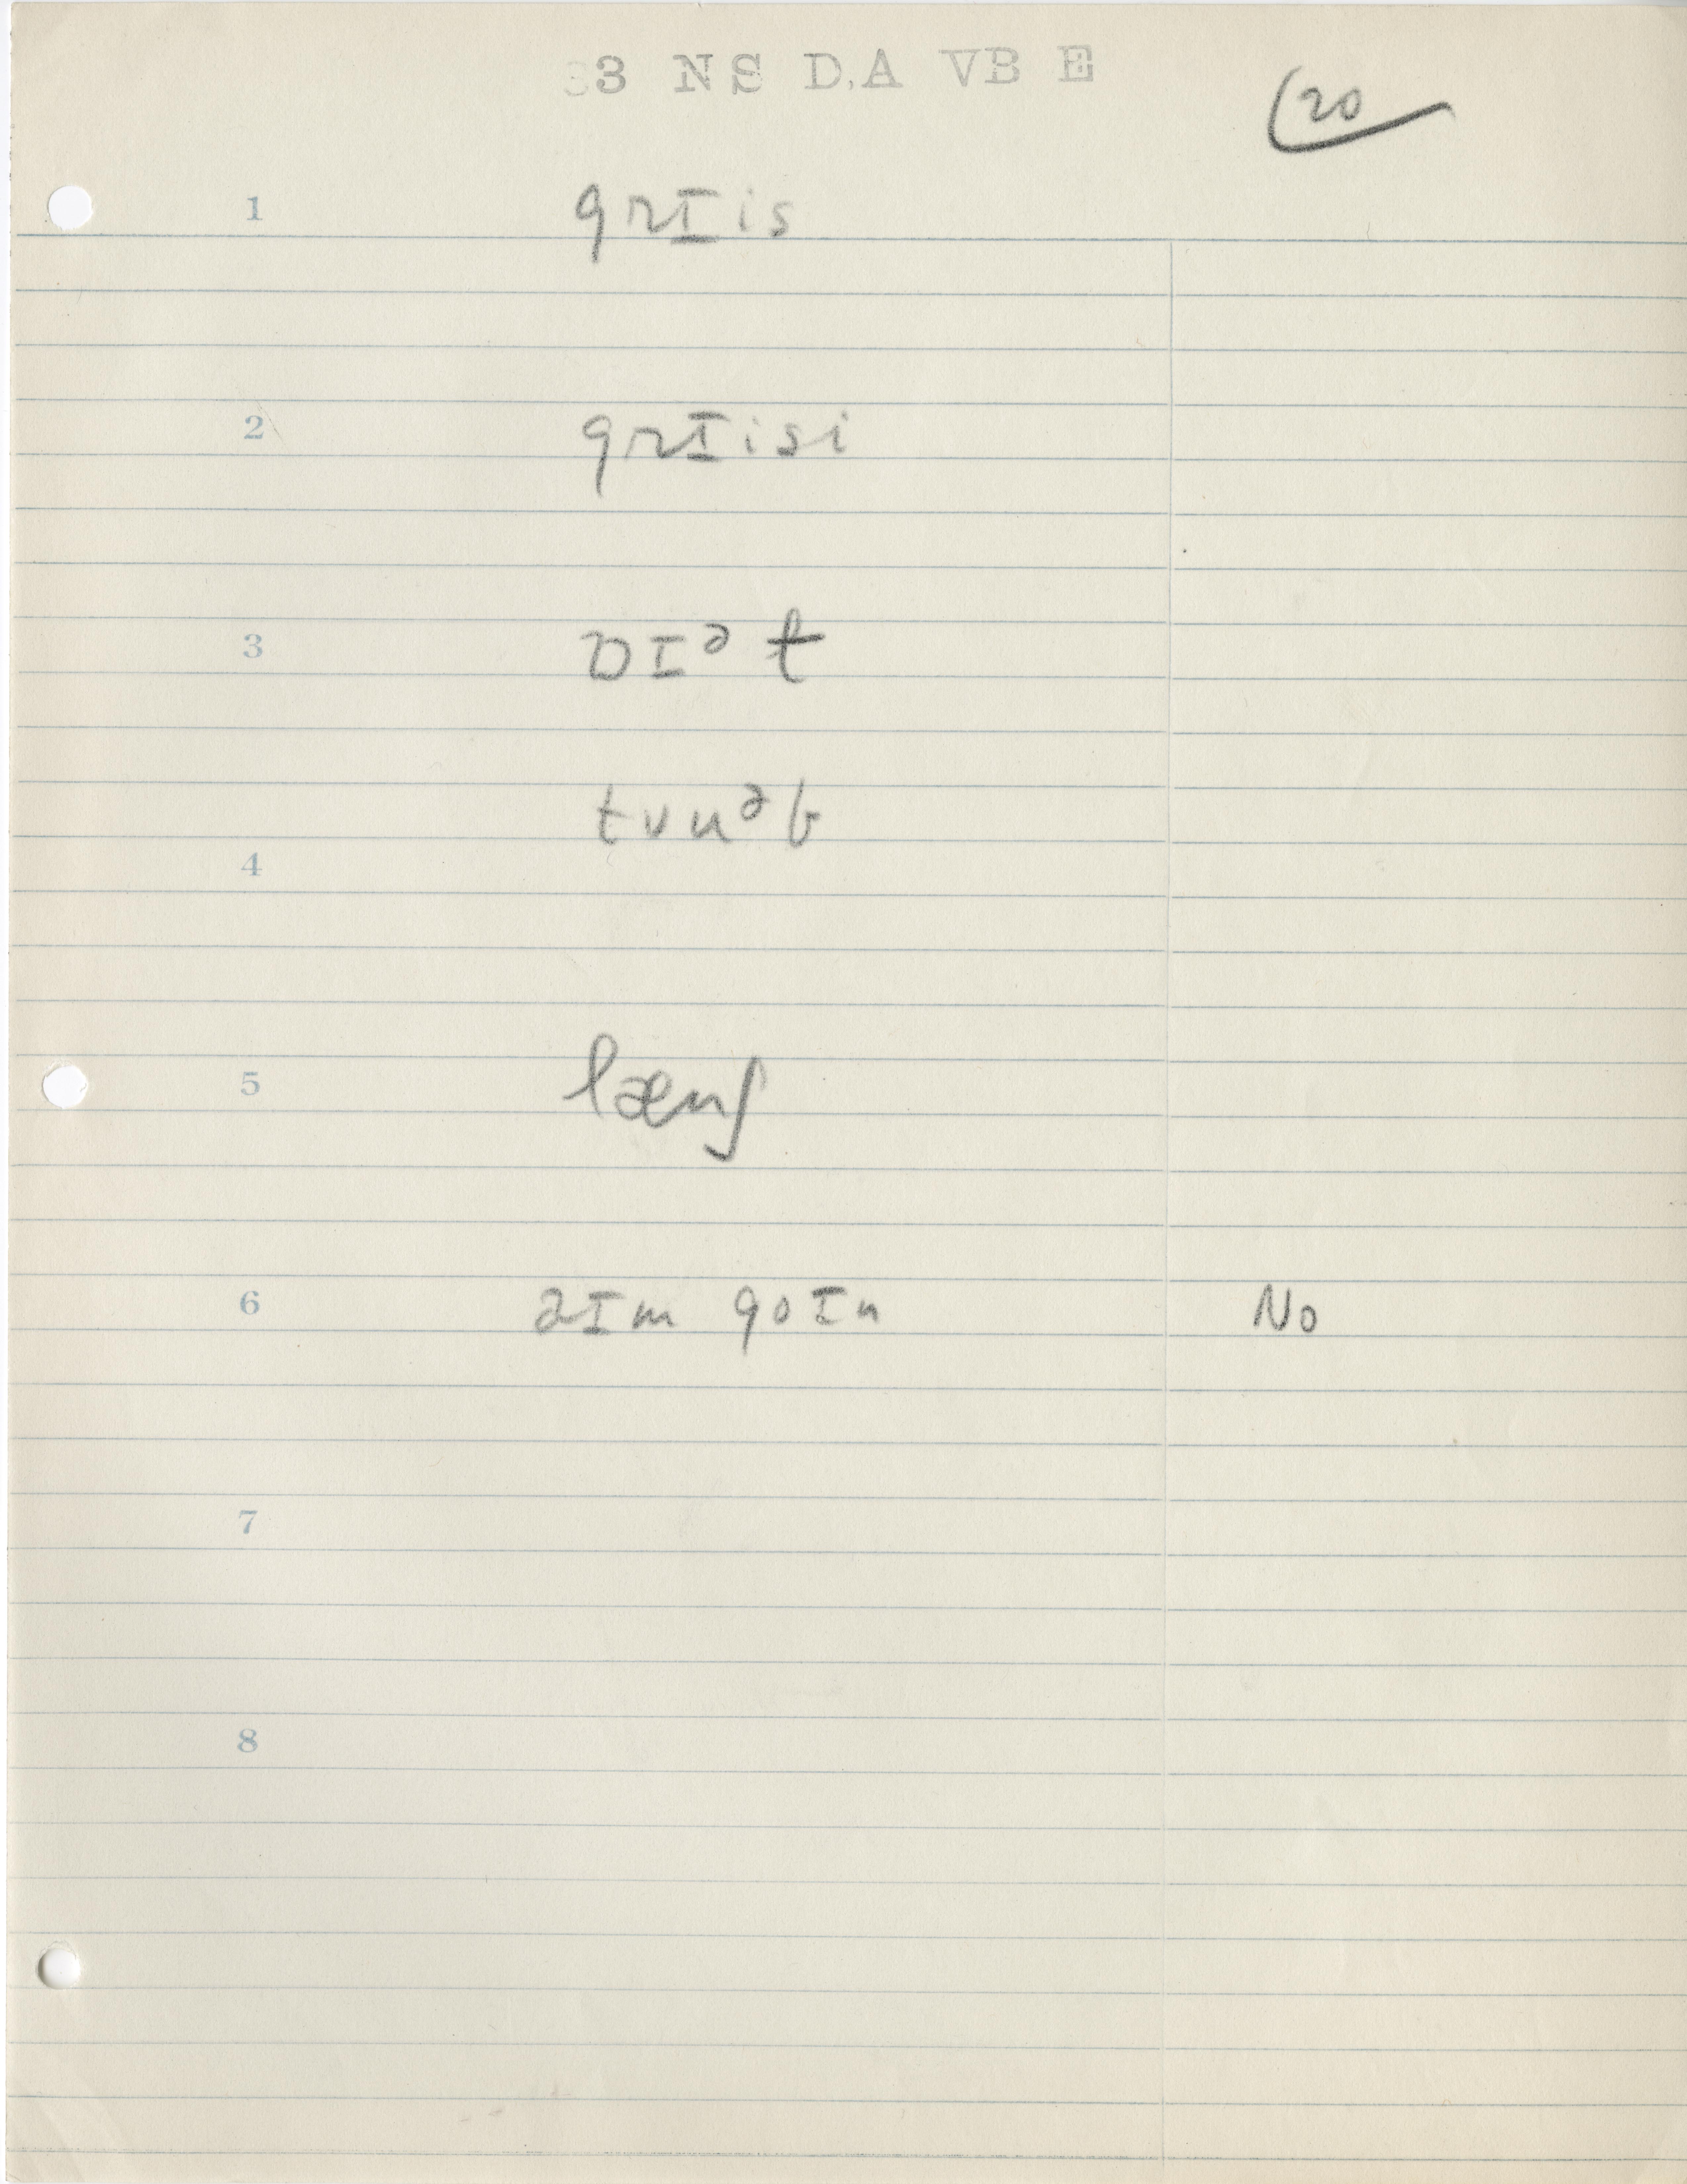 33 NS D.A VB E
(20
1 grɪis
2 grɪisi
3 ɒɪᵊt
tvnᵊb
4
5 læŋʃ
6 aɪm goɪn No
7
8